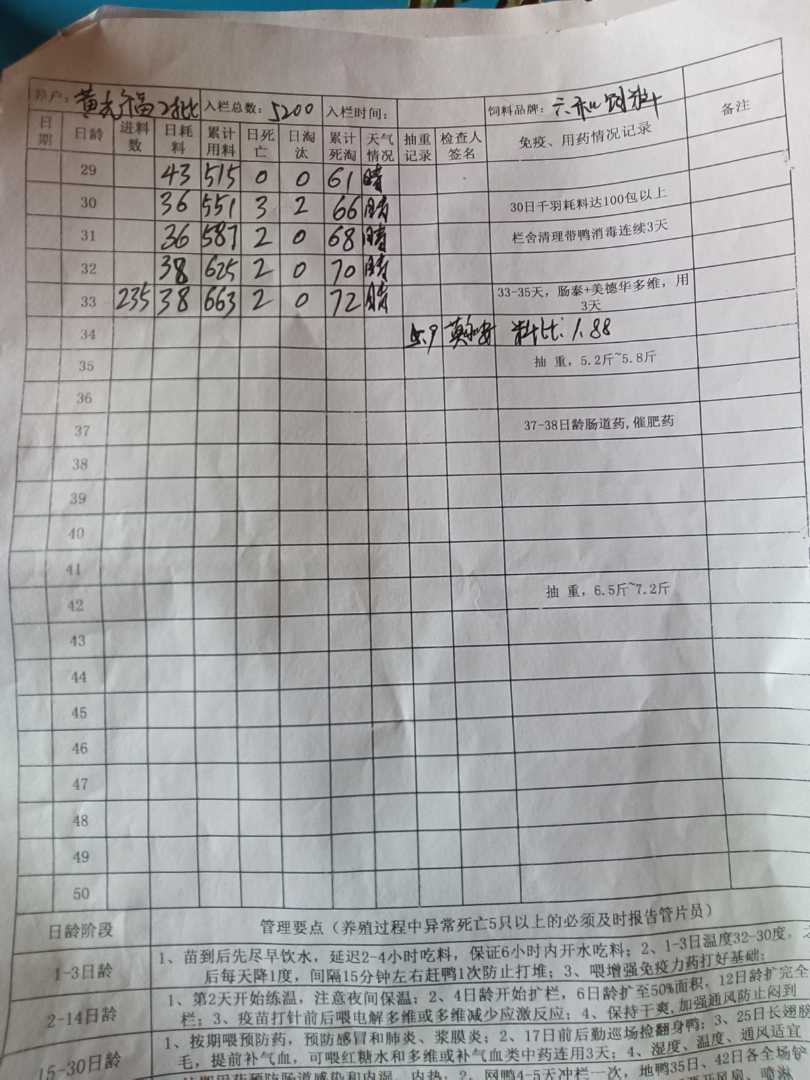 养户：黄 福 2批 入栏总数：5200 入栏时间： 饲料品牌：六和饲料 备注
日期 日龄 进料数 日耗料 累计用料 日死亡 日淘汰 累计死淘 天气情况 抽重记录 检查人签名 免疫、用药情况记录
29 43 515 0 0 61 晴
30 36 551 3 2 66 晴 30日千羽耗料达100包以上
31 36 587 2 0 68 晴 栏舍清理带鸭消毒连续3天
32 38 625 2 0 70 晴
33 235 38 663 2 0 72 晴 33-35天，肠泰+美德华多维，用3天
34 料比：1.88
35 抽 重，5.2斤~5.8斤
36
37 37-38日龄肠道药,催肥药
38
39
40
41
42 抽 重，6.5斤~7.2斤
43
44
45
46
47
48
49
50
日龄阶段 管理要点（养殖过程中异常死亡5只以上的必须及时报告管片员）
1-3日龄 1、苗到后先尽早饮水，延迟2-4小时吃料，保证6小时内开水吃料；2、1-3日温度32-30度，之
后每天降1度，间隔15分钟左右赶鸭1次防止打堆；3、喂增强免疫力药打好基础；
2-14日龄 1、第2天开始练温，注意夜间保温；2、4日龄开始扩栏，6日龄扩至50%面积，12日龄扩完全
栏；3、疫苗打针前后喂电解多维或多维减少应激反应；4、保持干爽,加强通风防止闷到
15-30日龄 1、按期喂预防药，预防感冒和肺炎、浆膜炎；2、17日前后勤巡场捡翻身鸭；3、25日长翅膀
毛，提前补气血，可喂红糖水和多维或补气血类中药连用3天；4、湿度、温度、通风适宜
预防肠道感染和内湿、内热；2、网鸭4-5天冲栏一次，地鸭35日、42日各全场铲